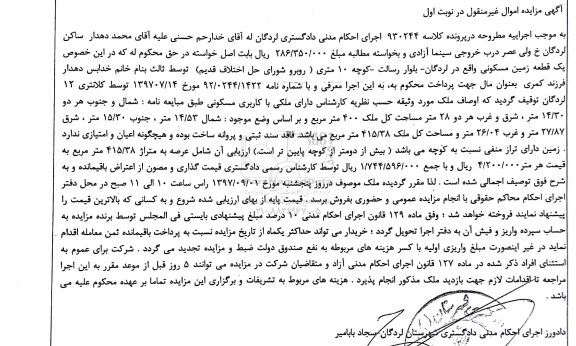 آگهی مزایده اموال غیرمنقول در نوبت اول
به موجب اجراییه مطروحه درپرونده کلاسه ۹۳۰۲۴۴ اجرای احکام مدنی دادگستری لردگان له آقای خدارحم حسنی علیه آقای محمد دهدار ساکن
لردگان خ ولی عصر درب خروجی سینما آزادی و بخواسته مطالبه مبلغ ۲۸۶/۳۵۰/۰۰۰ ریال بابت اصل خواسته در حق محکوم له که در این خصوص
یک قطعه زمین مسکونی واقع در لردگان- بلوار رسالت -کوچه ۱۰ متری ( روبرو شورای حل اختلاف قدیم) توسط ثالث بنام خانم خدابس دهدار
فرزند کمری بعنوان مال جهت پرداخت محکوم به، به این اجرا معرفی و با شماره نامه ۹۲/۰۲۴۴/۱۴۲۲ مورخ ۱۳۹۷۰۷/۱۴ توسط کلانتری ۱۲
لردگان توقیف گردید که اوصاف ملک مورد وثیقه حسب نظریه کارشناس دارای ملکی با کاربری مسکونی طبق مبایعه نامه : شمال و جنوب هر دو
۱۴/۳۰ متر ، شرق و غرب هر دو ۲۸ متر مساحت کل ملک ۴۰۰ متر مربع و بر اساس وضع موجود : شمال ۱۴/۵۳ متر ، جنوب ۱۵/۳۰ متر ، شرق
۲۷/۸۷ متر و غرب ۲۶/۰۴ متر و مساحت کل ملک ۴۱۵/۳۸ متر مربع می باشد. فاقد سند ثبتی و پروانه ساخت بوده و هیچگونه اعیان و امتیازی ندارد
. زمین دارای تراز منفی نسبت به کوچه می باشد ( بیش از دومتر از کوچه پایین تر است.) ارزیابی آن شامل عرصه به متراژ ۴۱۵/۳۸ متر مربع به
قیمت هر متر ۴/۲۰۰/۰۰۰ ریال و با جمع ۱/۷۴۴/۵۹۶/۰۰۰ ریال توسط کارشناس رسمی دادگستری قیمت گذاری و مصون از اعتراض باقیمانده و به
شرح فوق توصیف اجمالی شده است . لذا مقرر گردیده ملک موصوف درروز پنجشنبه مورخ ۱۳۹۷/۰۹/۰۱ راس ساعت ۱۰ الی ۱۱ صبح در محل دفتر
اجرای احکام محاکم حقوقی با انجام مزایده عمومی و حضوری بفروش برسد . قیمت پایه از بهای ارزیابی شده شروع و به کسانی که بالاترین قیمت را
پیشنهاد نمایند فروخته خواهد شد ؛ وفق ماده ۱۲۹ قانون اجرای احکام مدنی ۱۰ درصد مبلغ پیشنهادی بایستی فی المجلس توسط برنده مزایده به
حساب سپرده واریز و فیش آن به دفتر اجرا تحویل گردد ؛ خریدار می تواند حداکثر یکماه از تاریخ مزایده نسبت به پرداخت باقیمانده ثمن معامله اقدام
نماید در غیر اینصورت مبلغ واریزی اولیه با کسر هزینه های مربوطه به نفع صندوق دولت ضبط و مزایده تجدید می گردد . شرکت برای عموم به
استثنای افراد ذکر شده در ماده ۱۲۷ قانون اجرای احکام مدنی آزاد و متقاضیان شرکت در مزایده می توانند ۵ روز قبل از موعد مقرر به این اجرا
مراجعه تا اقدامات لازم جهت بازدید ملک مذکور انجام پذیرد . هزینه های مربوط به تشریفات و برگزاری این مزایده تماما بر عهده محکوم علیه می
باشد .
دادورز اجرای احکام مدنی دادگستری شهرستان لردگان سجاد بابامیر